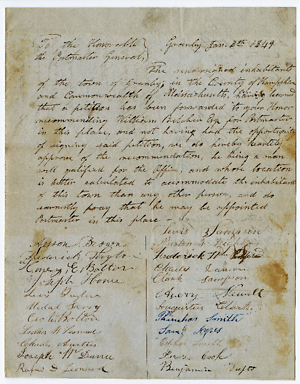 To the Honorable
the Postmaster General,
Granby, Jan. 8th 1849
The undersigned inhabitants
of the town of Granby, in the County of Hampshire
and Commonwealth of Massachusetts, having learned
that a petition has been forwarded to your Honor
recommending William Belcher Esq for Postmaster
in this place, and not having had the opportunity
of signing said petition, we do hereby heartily
approve of the recommendation, he being a man
well qualified for the Office, and whose location
is better calculated to accommodate the inhabitants
of this town than any other person and do
earnestly pray that he may be appointed
Postmaster in this place
Frederick Taylor
Henry E. Butler
Joseph Howe
Levi Taylor
Medad
Curtis
Joseph W.
Rufus Leonard
Lewis Simpson
Frederick
Charles
Clark Sampson
Augustus
Smith
Saml Ayres
Smith
Perez Cook
Benjamin